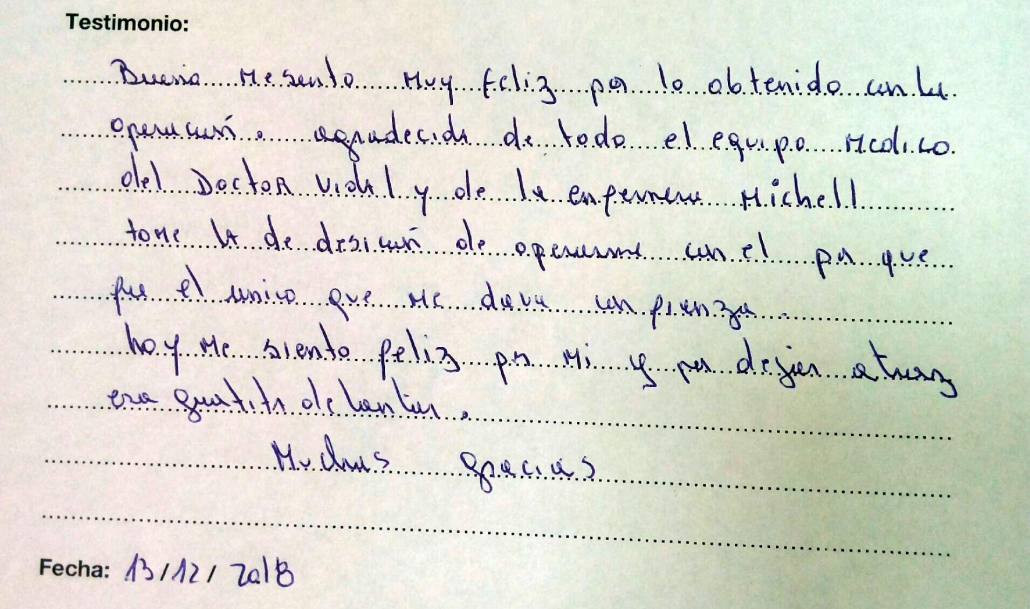 Testimonio:
Bueno me sento muy feliz por lo obtenido con la
operacion. agradecida de todo el equipo medico
del Doctor Vidal y de la enfermera Michell
tome la de desicion de operarme con el por que
fue el unico que me dava confianza.
hoy me siento feliz por mi y por dejar atraz
esa guatita delantar.
Muchas gracias
Fecha: 13/12/2018